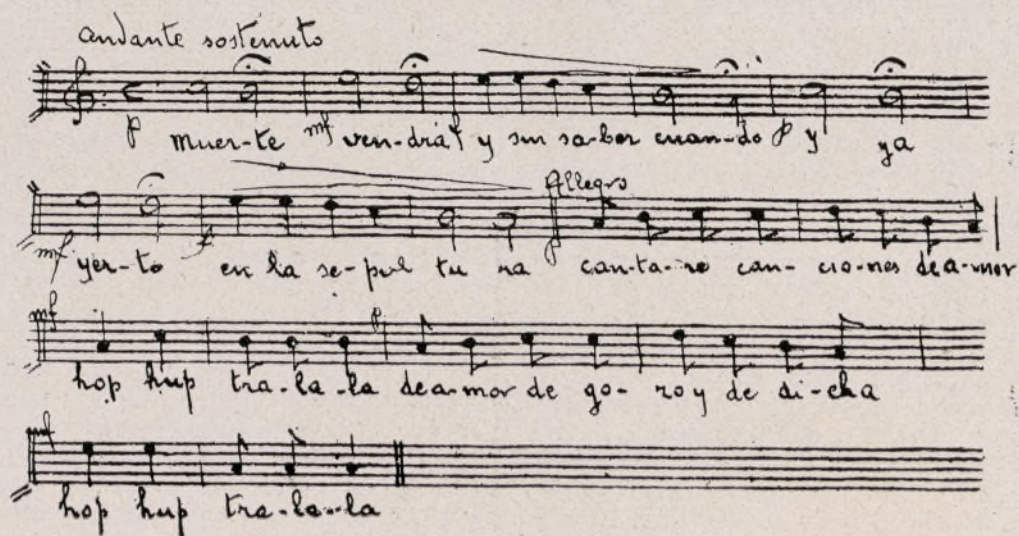 andante sostenuto
p muer-te mf ven-drá f y sin sa-ber cuan-do p y ya
Allegro
mf yer-to f en la se-pul tu ra p can-ta-ro can-cio-nes dea-mor
mf p
hop hup tra-la-la dea-mor de go-zo y de di-cha
mf
hop hup tra-la-la